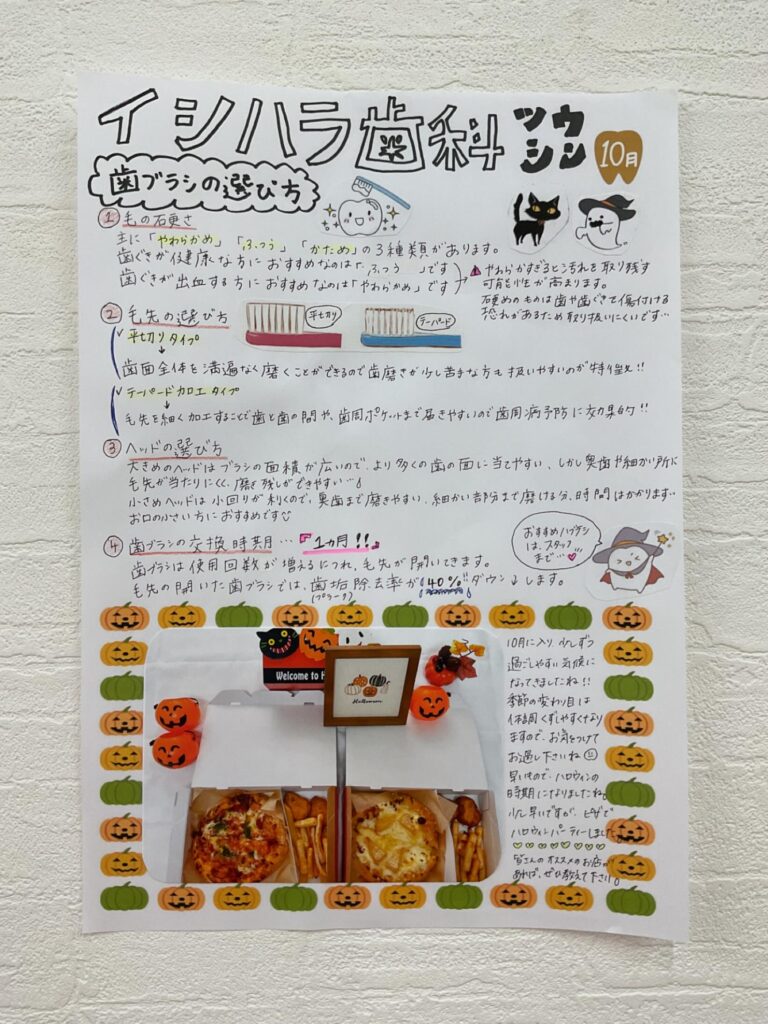 イシハラ歯科
ツウシン
10月
歯ブラシの選び方
① 毛の硬さ
主に「やわらかめ」「ふつう」「かため」の3種類があります。
歯ぐきが健康な方におすすめなのは「ふつう」です
歯ぐきが出血する方におすすめなのは「やわらかめ」です
やわらかすぎると汚れを取り残す
可能性が高まります。
硬めのものは歯や歯ぐきを傷付ける
恐れがあるため取り扱いにくいです…
② 毛先の選び方
平切り
テーパード
平切りタイプ
歯面全体を満遍なく磨くことができるので歯磨きが少し苦手な方も扱いやすいのが特徴!!
テーパード加工タイプ
毛先を細く加工することで歯と歯の間や、歯周ポケットまで届きやすいので歯周病予防に効果的!!
③ ヘッドの選び方
大きめのヘッドはブラシの面積が広いので、より多くの歯の面に当てやすい、しかし奥歯や細かい所に
毛先が当たりにくく、磨き残しができやすい…
小さめヘッドは小回りが利くので、奥歯まで磨きやすい、細かい部分まで磨ける分、時間はかかります…
お口の小さい方におすすめです
④ 歯ブラシの交換時期…『1ヵ月!!』
歯ブラシは使用回数が増えるにつれ、毛先が開いてきます。
毛先の開いた歯ブラシでは、歯垢除去率が40%ダウン↓します。
(プラーク)
おすすめハブラシ
は、スタッフ
まで…♡
Welcome to H
Halloween
10月に入り、少しずつ
過ごしやすい気候に
なってきましたね!!
季節の変わり目は
体調くずしやすくなり
ますので、お気をつけて
お過し下さいね
早いもので、ハロウィンの
時期になりましたね
少し早いですが、ピザで
ハロウィンパーティーしました
皆さんのオススメのお店が
あれば、ぜひ教えて下さい。